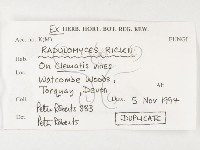 Ex HERB. HORT. BOT. REG. KEW.
K(M) FUNGI
RADULOMYCES RICKII
Hab. On Clematis vines
Loc. Watcombe Woods, Alt.
Torquay, Devon
Coll. Peter Roberts 883 Dat. 5 Nov 1994
Det. Peter Roberts DUPLICATE